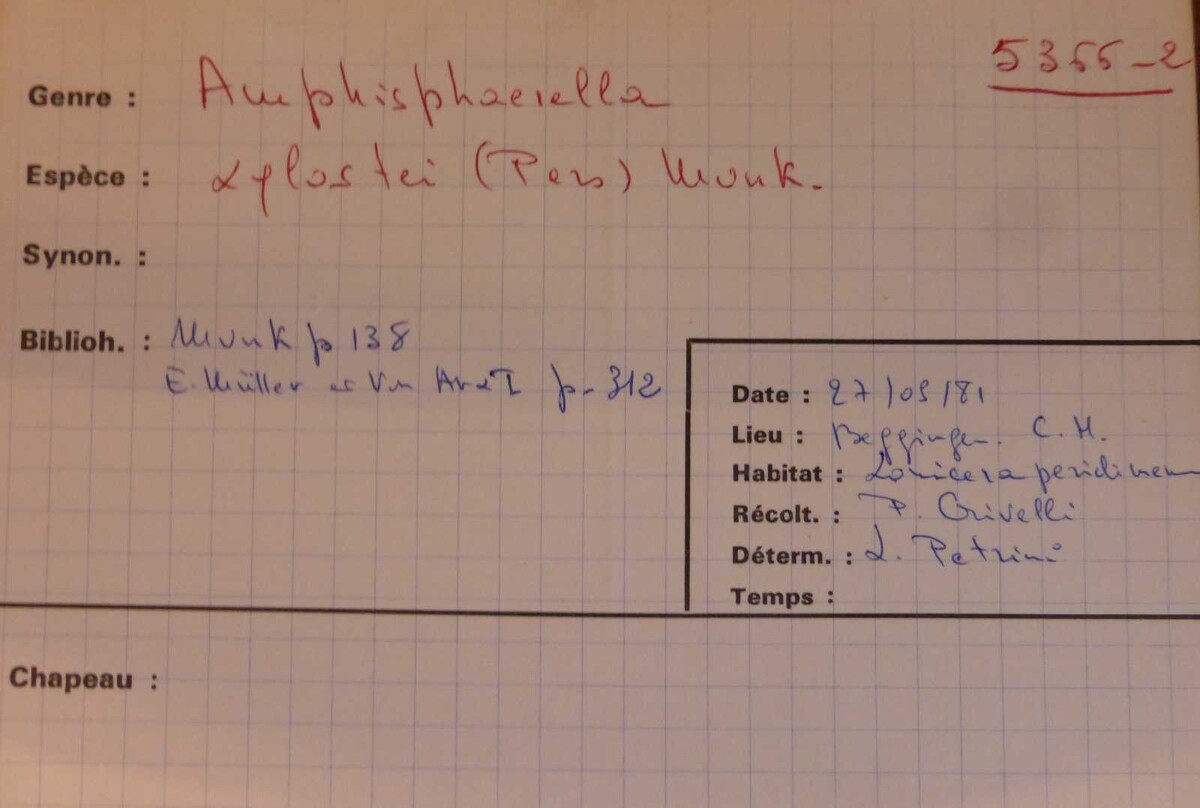 5366-2
Genre : Amphisphaerella
Espèce : xylostei (Pers) Munk.
Synon. :
Biblioh. : Munk p 138
E. Müller et Von Arx I p. 312
Date : 27/05/81
Lieu : Beggingen. C.H.
Habitat : Lonicera
Récolt. : P. Crivelli
Déterm. : L. Petrini
Temps :
Chapeau :